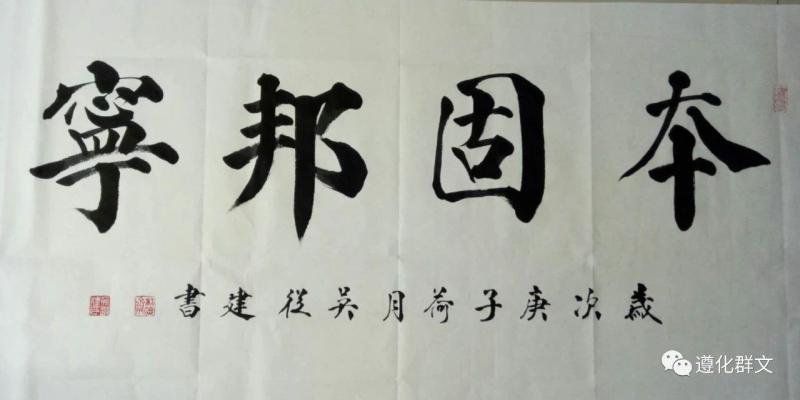 本固邦寧
歲次庚子荷月吴從建書
遵化群文